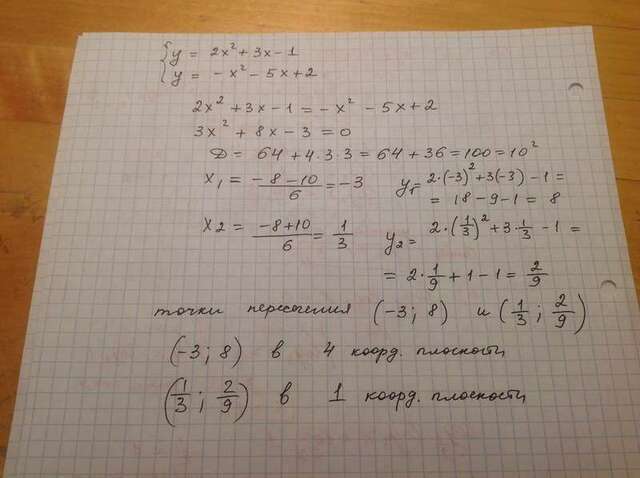 { y = 2x² + 3x - 1
y = - x² - 5x + 2
2x² + 3x - 1 = - x² - 5x + 2
3x² + 8x - 3 = 0
D = 64 + 4·3·3 = 64 + 36 = 100 = 10²
x₁ = (-8-10)/6 = -3 y₁ = 2·(-3)² + 3(-3) - 1 =
= 18 - 9 - 1 = 8
x₂ = (-8+10)/6 = 1/3 y₂ = 2·(1/3)² + 3·1/3 - 1 =
= 2·1/9 + 1 - 1 = 2/9
точки пересечения (-3; 8) и (1/3; 2/9)
(-3; 8) в 4 коорд. плоскости
(1/3; 2/9) в 1 коорд. плоскости